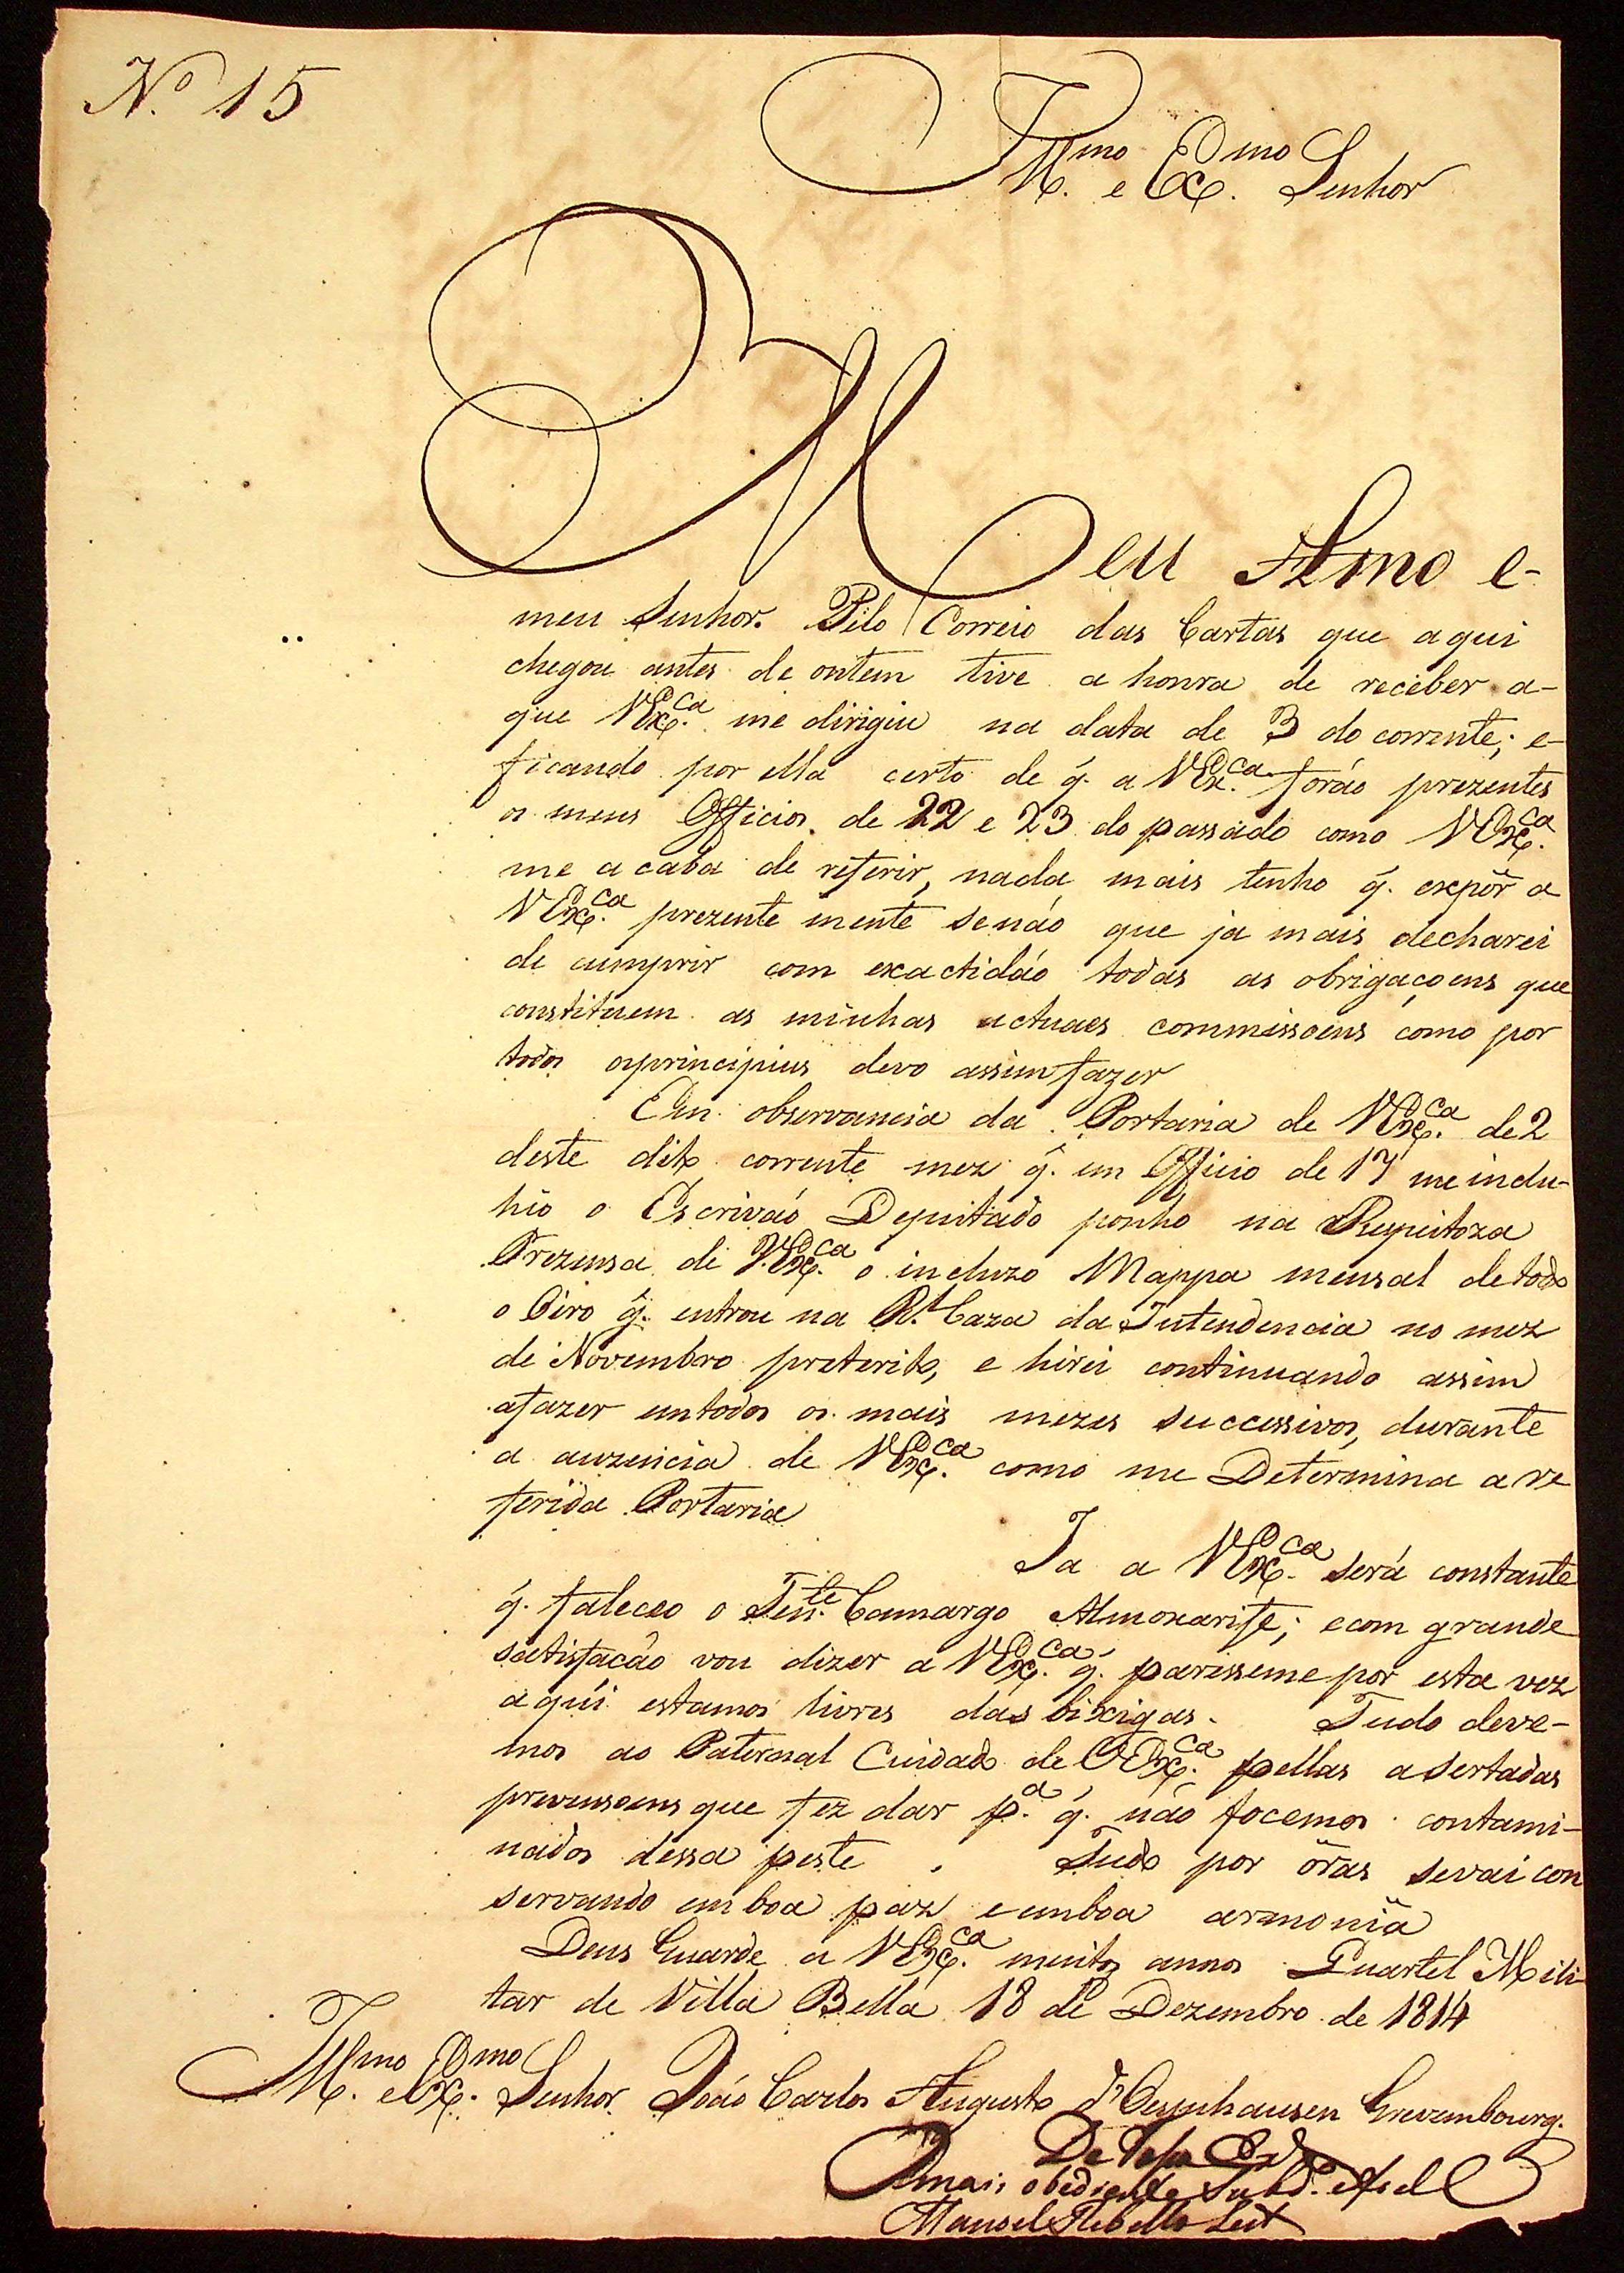 Nº 15
Illmo e Exmo Senhor
Meu Amo e
meu Senhor. Pelo Correio das Cartas que aqui
chegou antes de ontem tive a honra de receber a-
que VExca. me dirigiu na data de 3 do corrente; e-
ficando por ella certo de q̃. a VExca. forão prezentes
os meus Officios de 22 e 23 do passado como VExca.
me acaba de referir, nada mais tenho q̃. expôr a
VExca. prezente mente senão que ja mais decharei
de cumprir com exactidão todas as obrigaçoens que
constituem as minhas actuaes commissoens como por
todos osprincipius devo assimfazer
Em observancia da Portaria de VExca. de 2
deste dito corrente mez q̃. em Officio de 17 me inclu-
hio o Escrivão Deputado ponho na Respeitoza
Prezensa de V.Exca. o incluzo Mappa mensal detodo
o Oiro q̃. entrou na Rl. Caza da Intendencia no mez
de Novembro preterito, e hirei continuando assim
afazer emtodos os mais mezes successivos, durante
a auzencia de VExca. como me Determina a re
ferida Portaria
Ja a VExca. será constante
q̃. faleceo o Tente. Camargo Almoxarife; ecom grande
satisfacão vou dizer a VExca. q̃. parisseme por esta vez
aqui estamos livres das bixigas. Tudo deve-
mos ao Paternal Cuidado de VExca. pellas asertadas
prevensoens que fez dar pa. q̃. não focemos contami-
nados dessa peste. Tudo por oras sevai con
servando em boa paz e emboa armonia
Deus Guarde a VExca. muitos annos Quartel Mili-
tar de Villa Bella 18 de Dezembro de 1814
Illmo e Exmo. Senhor João Carlos Augusto d'Oeynhausen Grevembourg.
De Vossa Exca
O mais obediente Subdo. e fiel
Manoel Rebello Leit